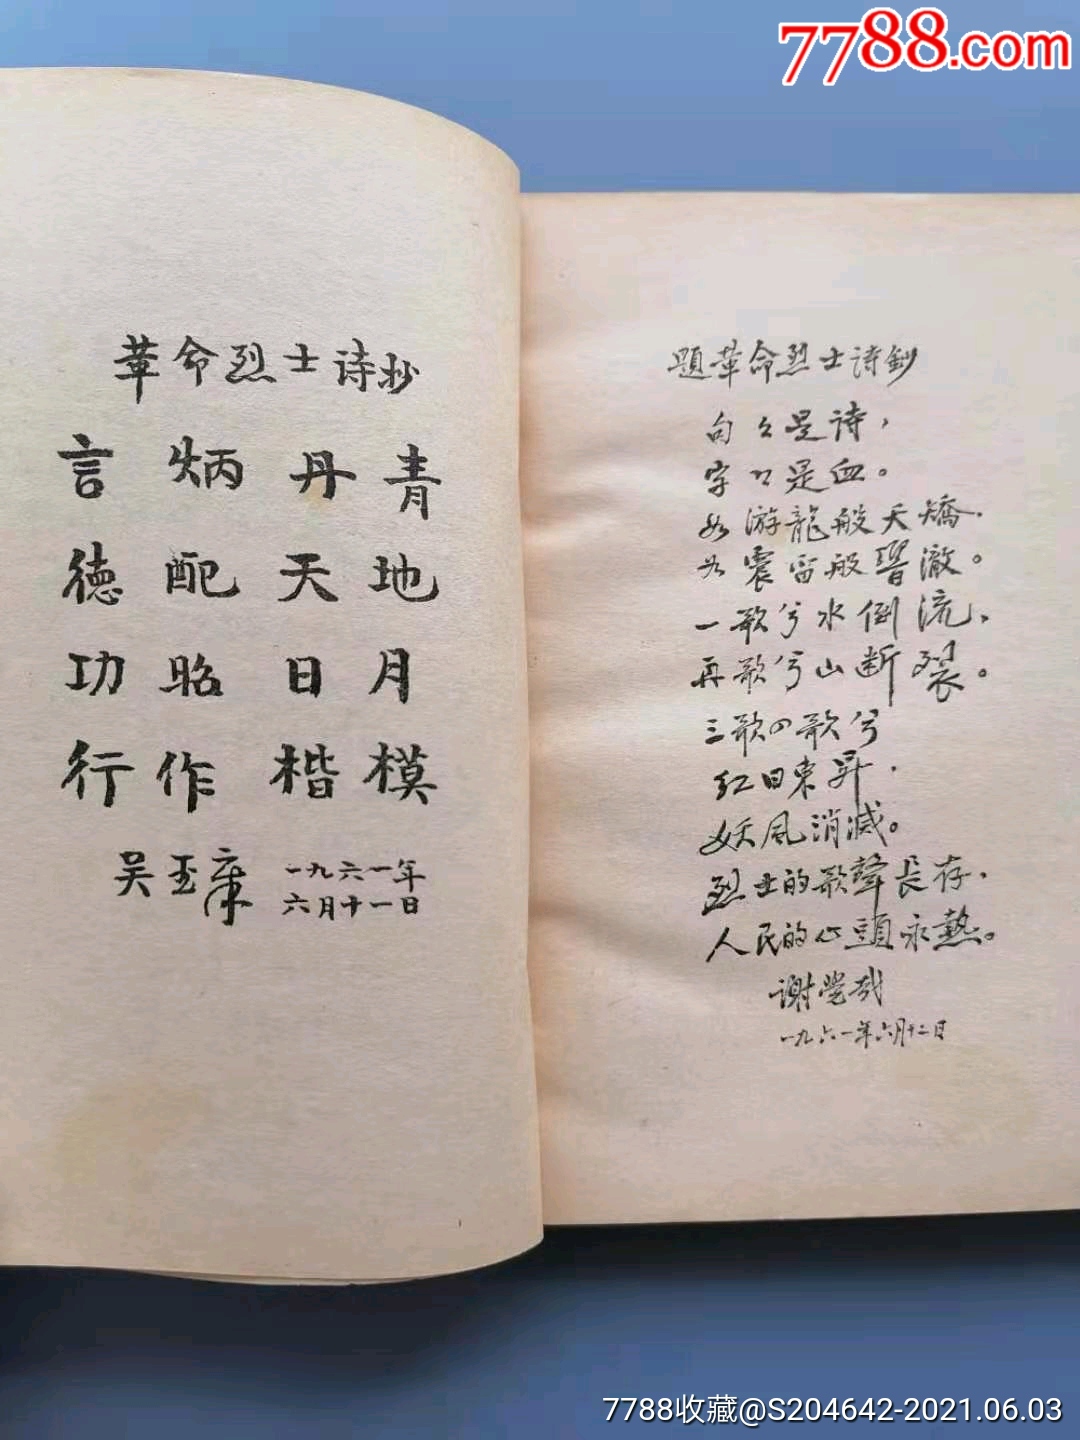 7788.com
革命烈士诗抄
言炳丹青
德配天地
功昭日月
行作楷模
吴玉章 一九六一年
六月十一日
题革命烈士诗鈔
句々是诗，
字々是血。
如游龍般夭矯，
如震雷般響澈。
一歌兮水倒流，
再歌兮山断裂。
三歌四歌兮
红日東昇，
妖風消滅。
烈士的歌聲長存，
人民的心頭永熱。
谢觉哉
一九六一年六月十二日
7788收藏@S204642-2021.06.03